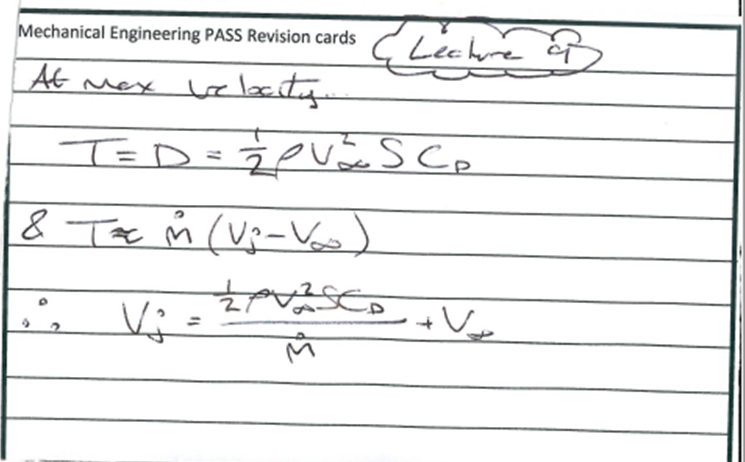 Mechanical Engineering PASS Revision cards Lecture 9
At max velocity...
T = D = 1/2 ρ V∞² S C_D
& T ≈ ṁ (Vj - V∞)
∴ Vj = (1/2 ρ V∞² S C_D) / ṁ + V∞